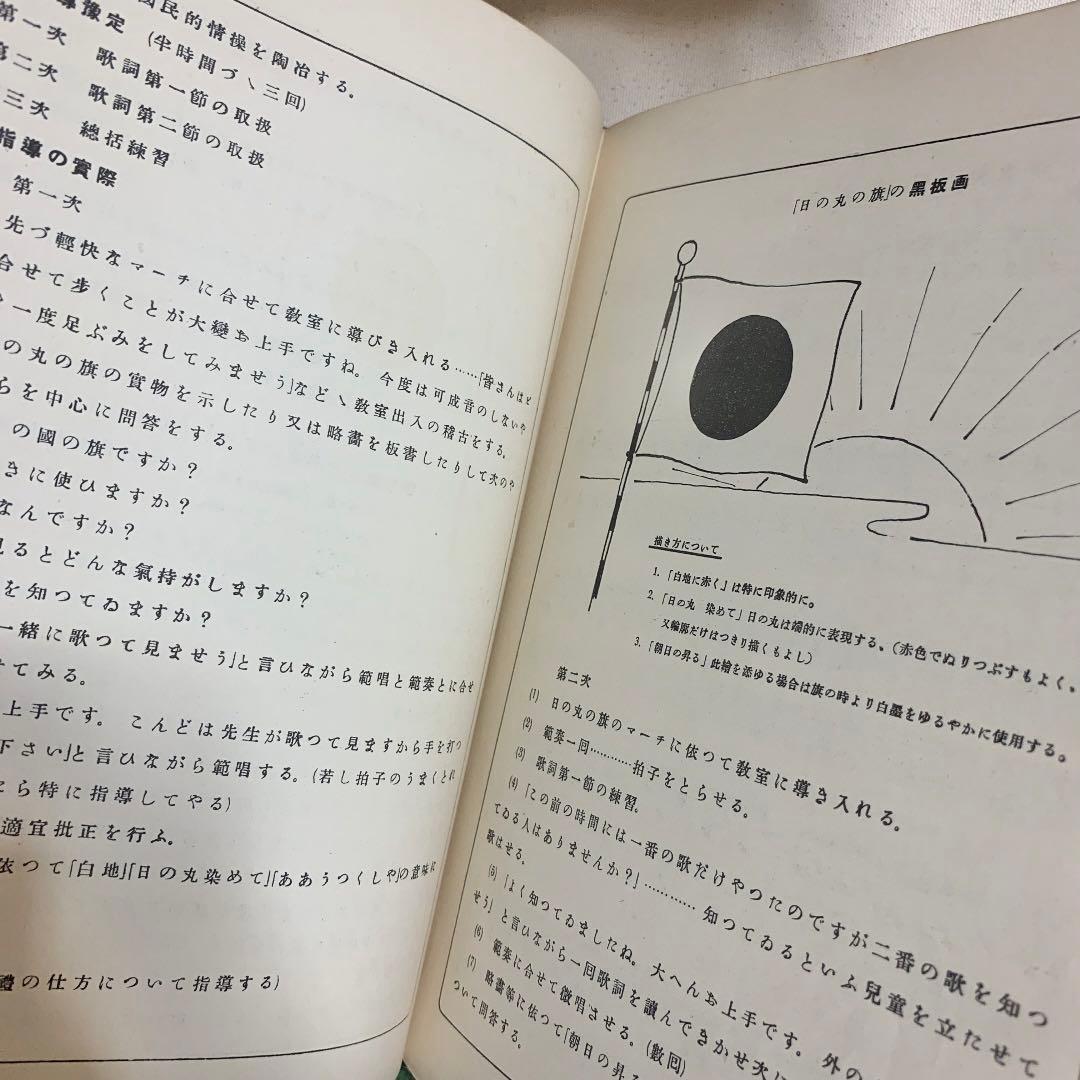 國民的情操を陶冶する。
導豫定 (半時間づゝ三回)
第一次 歌詞第一節の取扱
第二次 歌詞第二節の取扱
三次 總括練習
指導の實際
第一次
先づ輕快なマーチに合せて教室に導びき入れる……「皆さんはど
合せて歩くことが大變お上手ですね。今度は可成音のしないや
一度足ぶみをしてみませう」などゝ教室出入の稽古をする。
の丸の旗の實物を示したり又は略畵を板書したりして次のや
らを中心に問答をする。
の國の旗ですか?
きに使ひますか?
なんですか?
見るとどんな氣持がしますか?
を知つてゐますか?
一緒に歌つて見ませう」と言ひながら範唱と範奏とに合せ
せてみる。
上手です。こんどは先生が歌つて見ますから手を打つ
下さい」と言ひながら範唱する。(若し拍子のうまくとれ
たら特に指導してやる)
適宜批正を行ふ。
依つて「白地」「日の丸染めて」「ああうつくしや」の意味に
禮の仕方について指導する)
「日の丸の旗」の黑板画
描き方について
1. 「白地に赤く」は特に印象的に。
2. 「日の丸 染めて」日の丸は端的に表現する。(赤色でぬりつぶすもよく。
又輪廓だけはつきり描くもよし)
3. 「朝日の昇る」此繪を添ゆる場合は旗の時より白墨をゆるやかに使用する。
第二次
(1) 日の丸の旗のマーチに依つて教室に導き入れる。
(2) 範奏一回………拍子をとらせる。
(3) 歌詞第一節の練習。
(4) 「この前の時間には一番の歌だけやつたのですが二番の歌を知つ
てゐる人はありませんか?」…………知つてゐるといふ兒童を立たせて
歌はせる。
(5) 「よく知つてゐましたね。大へんお上手です。外の
せう」と言ひながら一回歌詞を讀んできかせ次に
(6) 範奏に合せて微唱させる。(數回)
(7) 略畵等に依つて「朝日の昇る
ついて問答する。